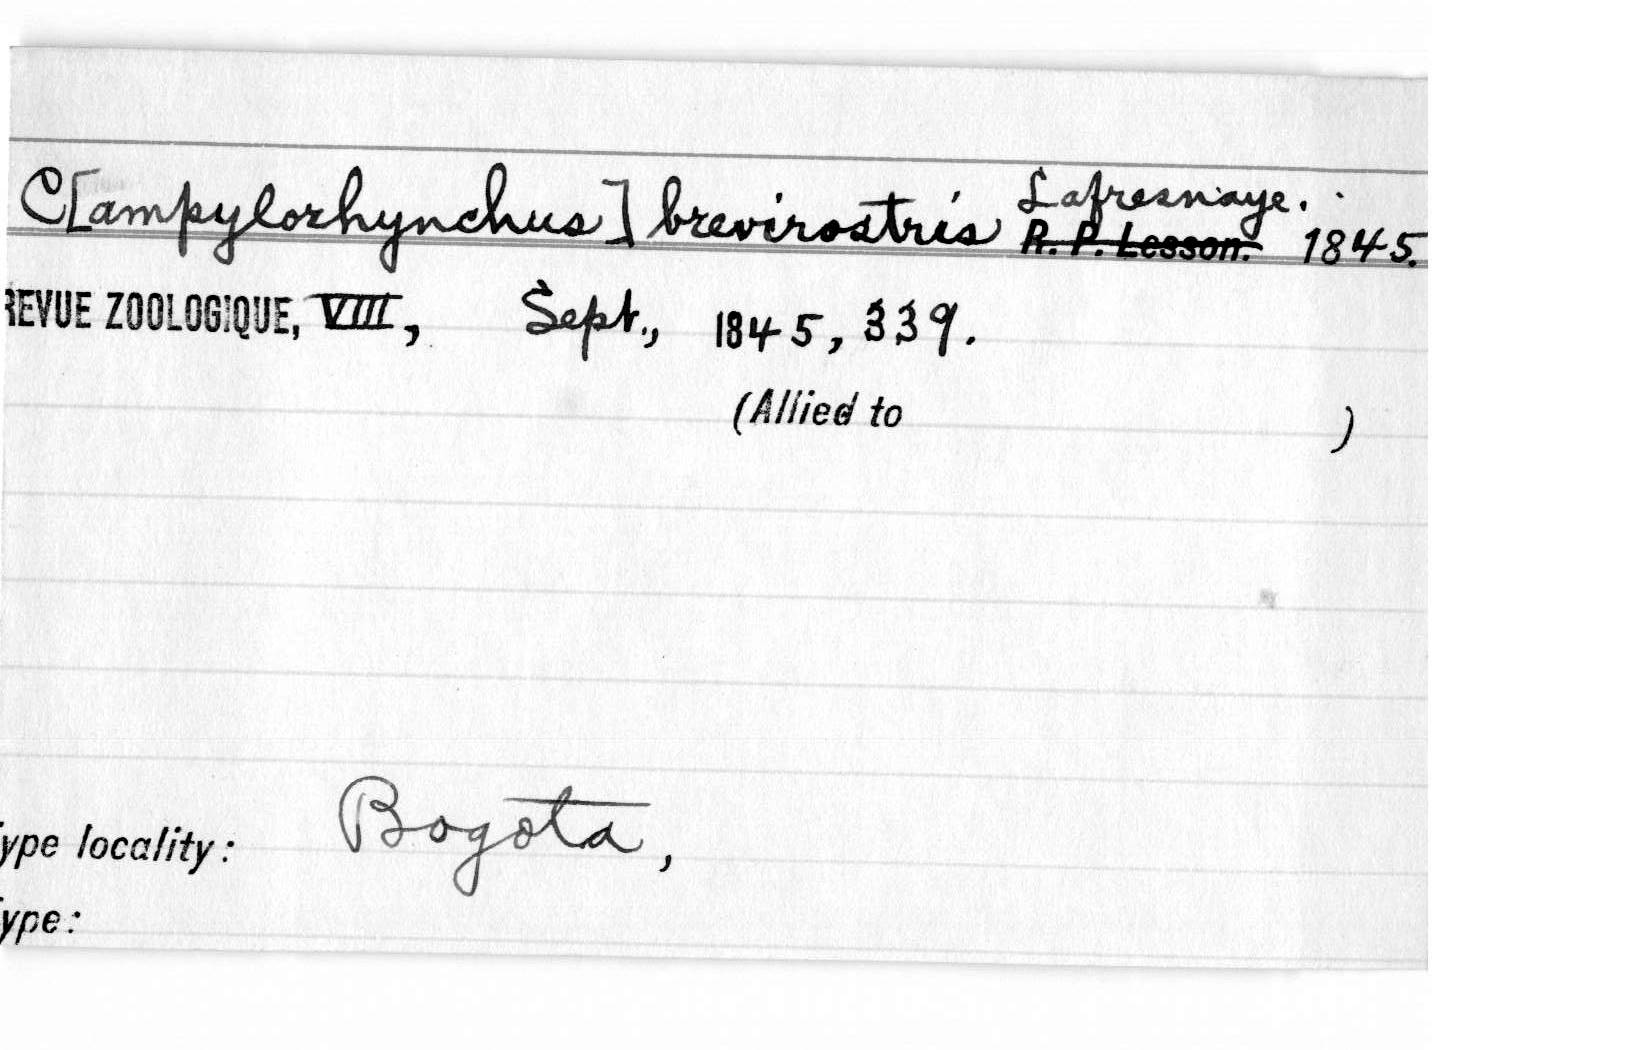 C[ampylorhynchus] brevirostris Lafresnaye.
R. P. Lesson. 1845.
REVUE ZOOLOGIQUE, VIII, Sept., 1845, 339.
(Allied to )
ype locality: Bogota,
ype: